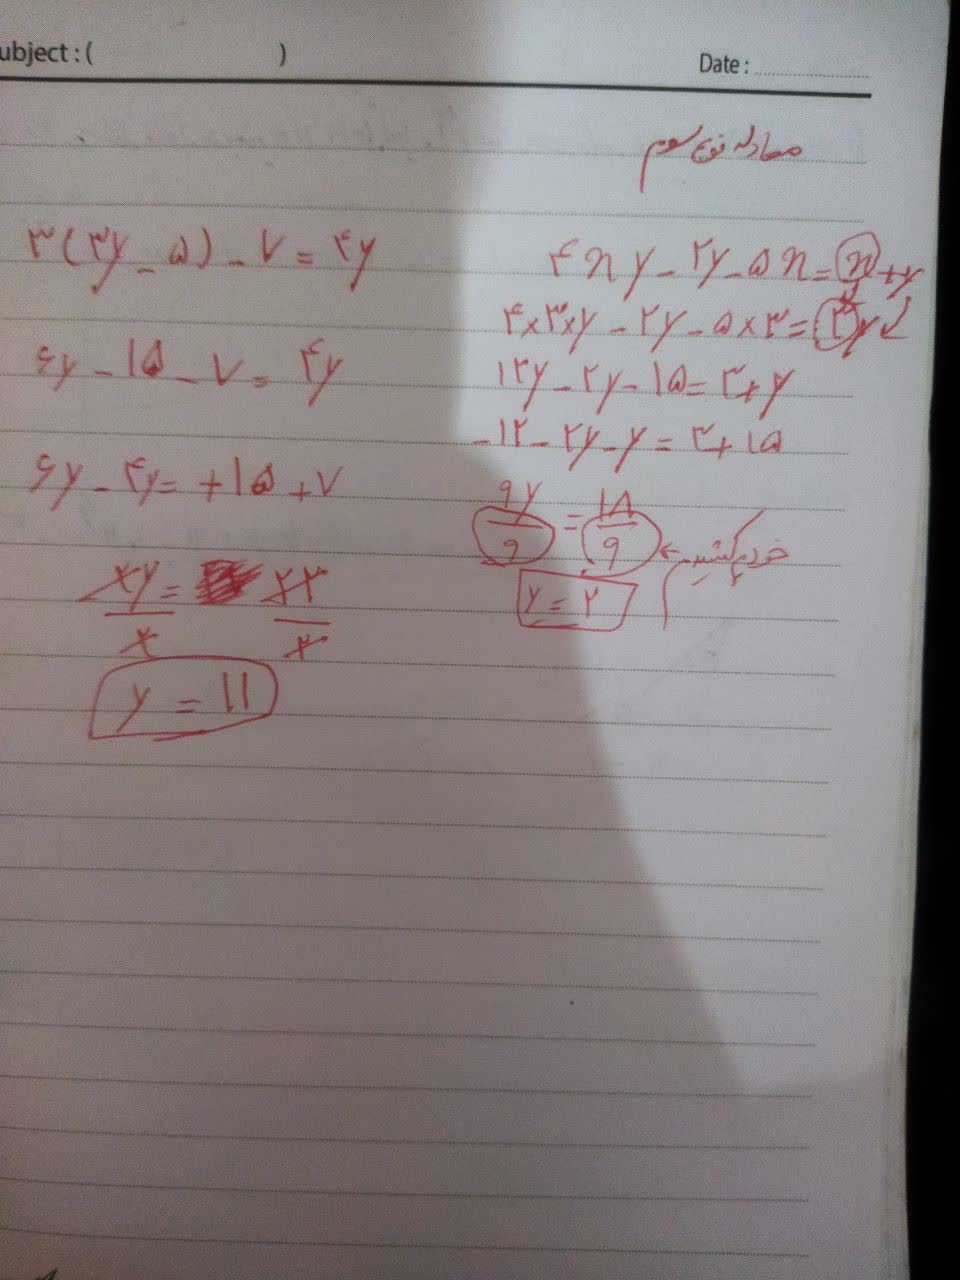 ubject : ( )
Date :
معادله نوع سوم
۴xy - ۲y - ۵x = x + y
۴×۳×y - ۲y - ۵×۳ = ۳ y
۱۲y - ۲y - ۱۵ = ۳ + y
-۱۲ - ۲y - y = ۳ + ۱۵
۹y/۹ = ۱۸/۹
y = ۲
۳(۳y - ۵) - ۷ = ۴y
۶y - ۱۵ - ۷ = ۴y
۶y - ۴y = +۱۵ + ۷
۲y/۲ = ۲۲/۲
y = ۱۱